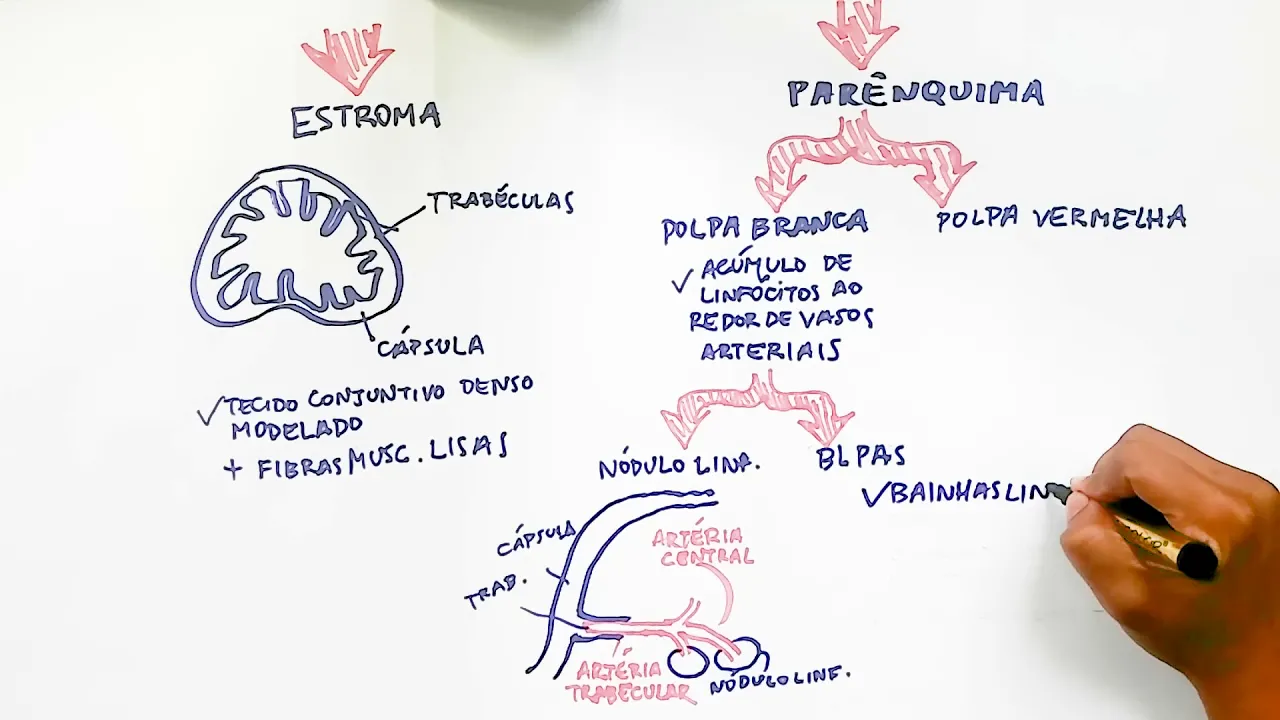 ESTROMA
TRABÉCULAS
CÁPSULA
✓TECIDO CONJUNTIVO DENSO
MODELADO
+ FIBRAS MUSC. LISAS
PARÊNQUIMA
POLPA BRANCA
POLPA VERMELHA
✓ ACÚMULO DE
LINFÓCITOS AO
REDOR DE VASOS
ARTERIAIS
NÓDULO LINF.
BLPAS
✓BAINHAS LIN
CÁPSULA
TRAB.
ARTÉRIA
CENTRAL
ARTÉRIA
TRABECULAR
NÓDULO LINF.